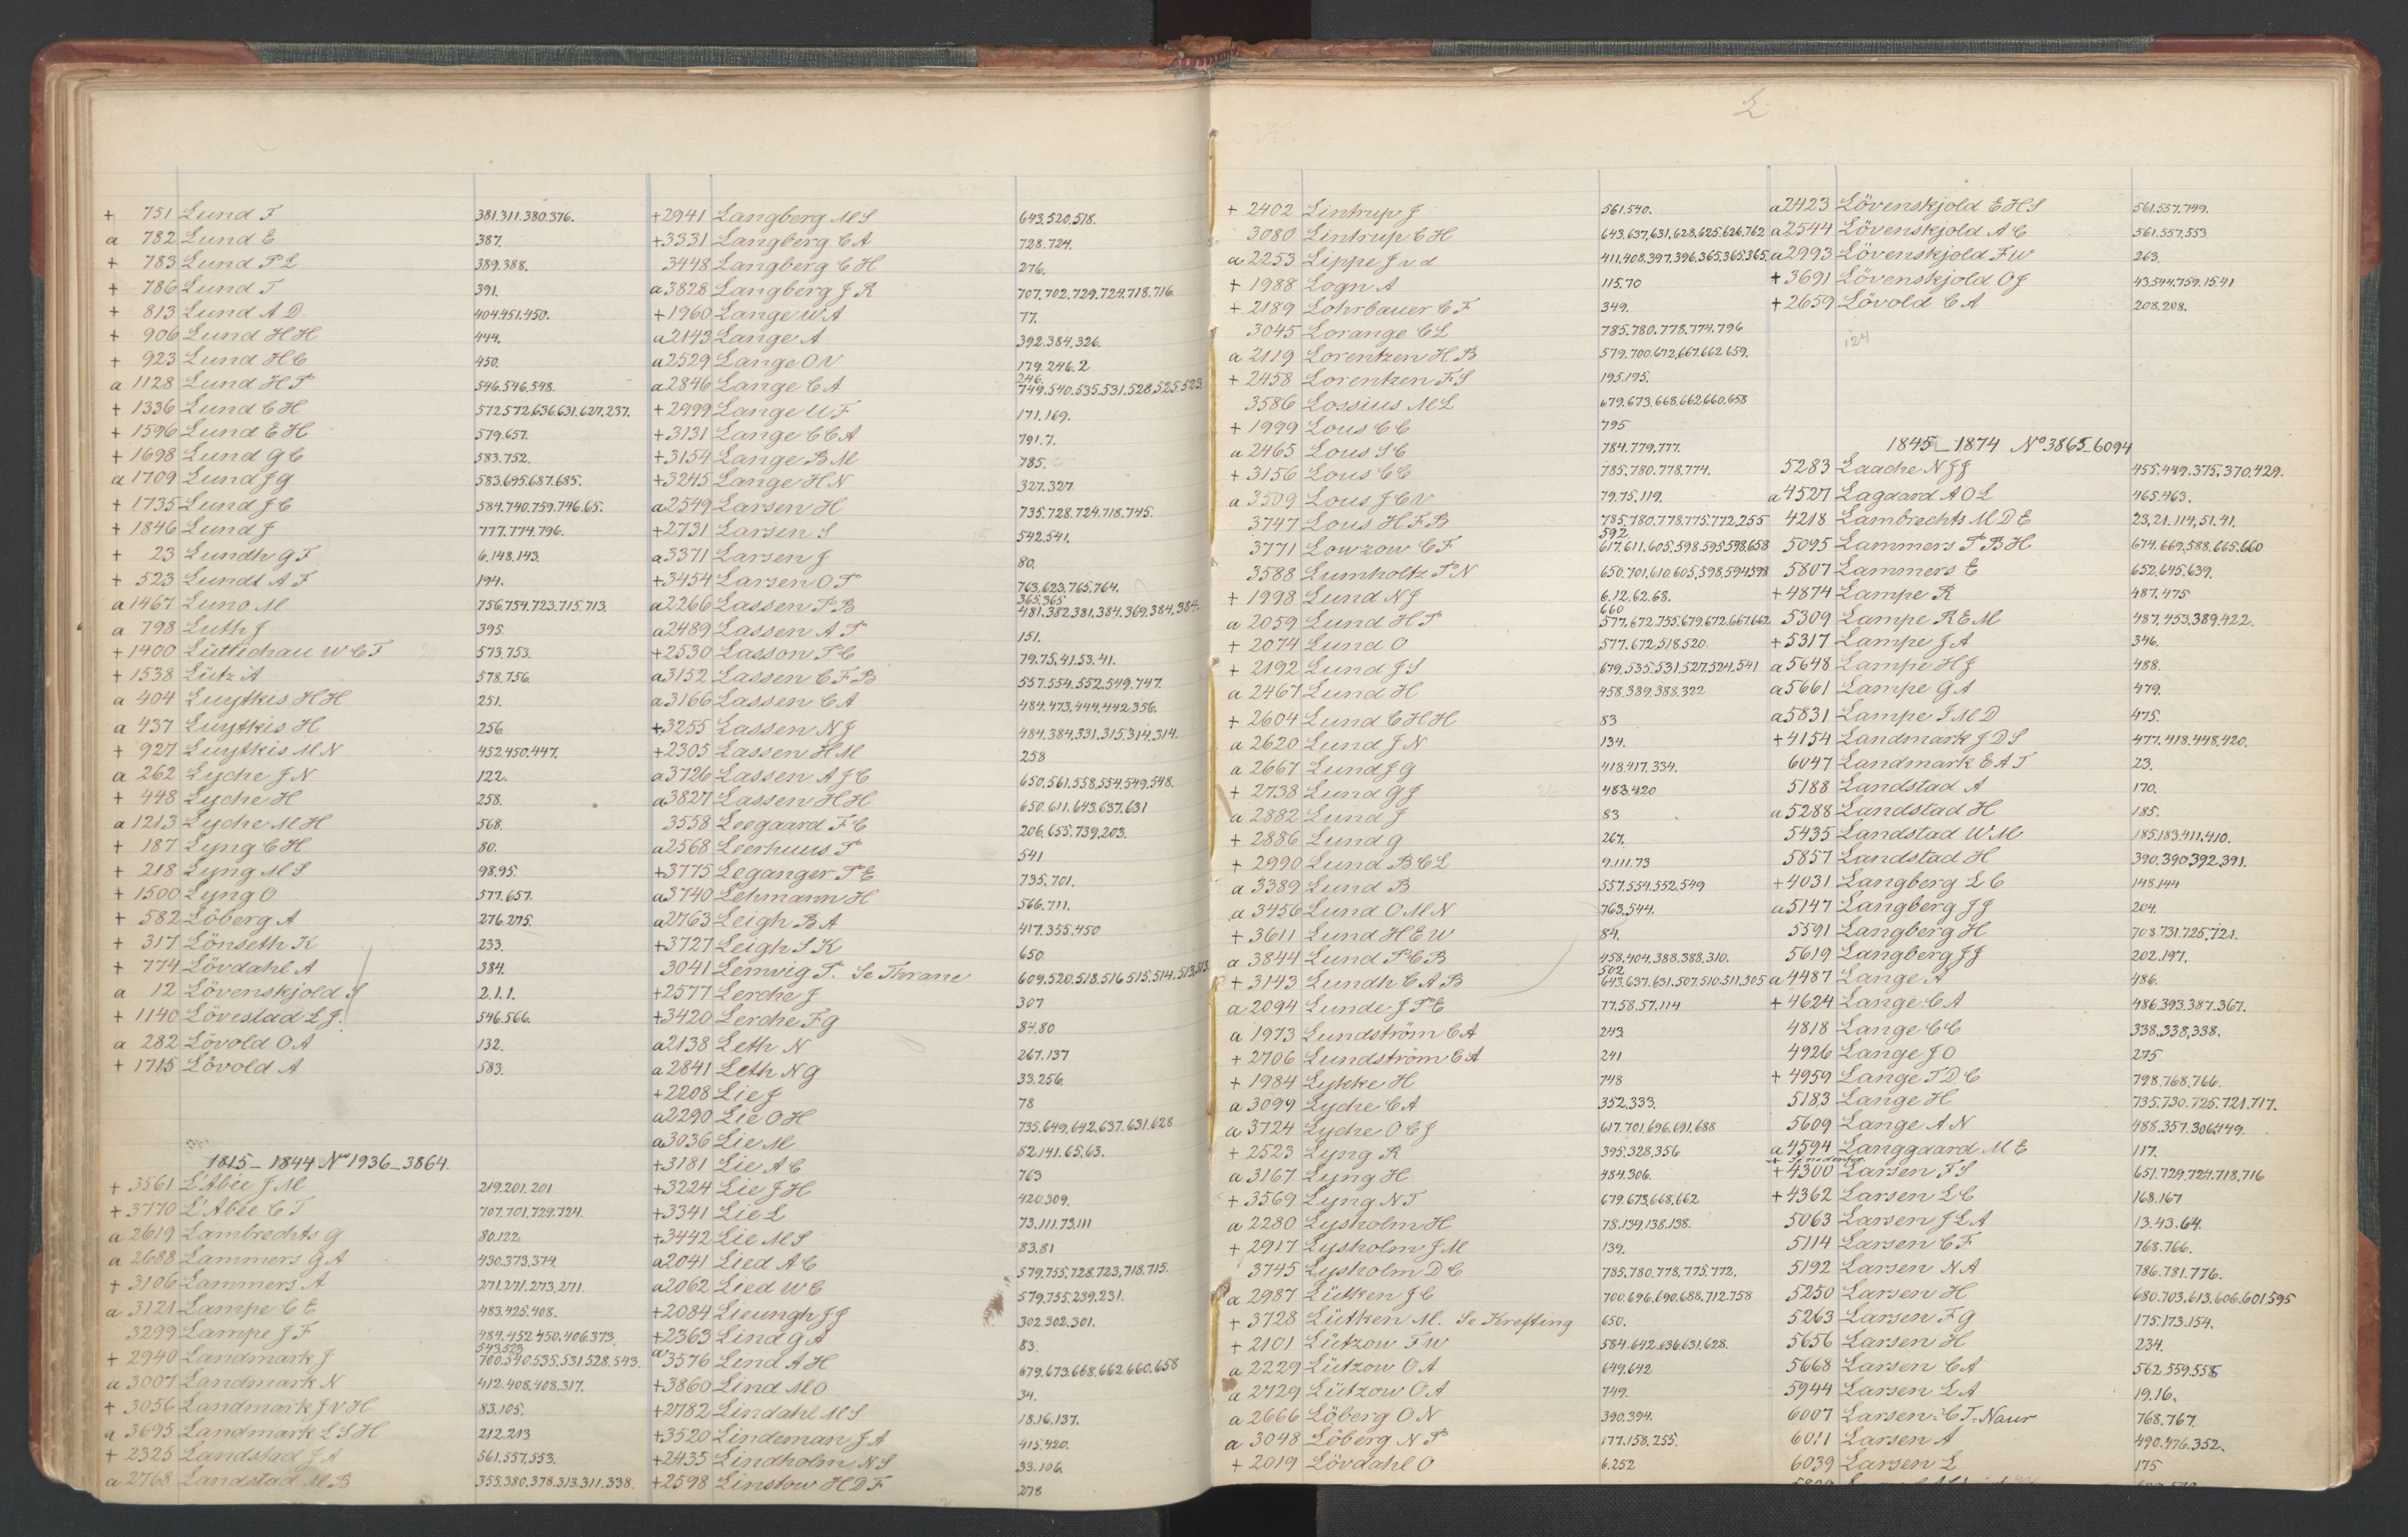 L
+ 751 Lund F 381.311.380.376.
a 782 Lund E 387.
+ 783 Lund P L 389.388.
+ 786 Lund T 391.
+ 813 Lund A D 404.451.450.
+ 906 Lund H H 444.
+ 923 Lund H C 450.
a 1128 Lund H P 546.546.548.
+ 1336 Lund C H 572.572.636.631.627.237.
+ 1596 Lund E H 579.657.
+ 1698 Lund G C 583.752.
a 1709 Lund J G 583.695.687.685.
+ 1735 Lund J C 584.740.759.746.65.
+ 1846 Lund J 777.774.796.
+ 23 Lundh G F 6.148.143.
+ 523 Lundt A F 194.
a 1467 Luno M 756.754.723.715.713.
a 798 Luth J 395.
+ 1400 Lüttichau W C T 573.753.
+ 1538 Lütz A 578.756.
a 404 Luytkis H H 251.
a 437 Luytkis H 256.
+ 927 Luytkis M N 452.450.447.
a 262 Lyche J N 122.
+ 448 Lyche H 258.
a 1213 Lyche M H 568.
+ 187 Lyng C H 80.
+ 218 Lyng M S 98.95.
+ 1500 Lyng O 577.657.
+ 582 Löberg A 276.275.
+ 317 Lönseth K 233.
+ 774 Lövdahl A 384.
a 12 Lövenskjold S 2.1.1.
+ 1140 Lövestad L J. 546.566.
a 282 Lövold O A 132.
+ 1715 Lövold A 583.
1815_1844 No 1936_3864.
+ 3561 L'Abée J M 219.201.201
+ 3770 L'Abée C T 707.701.729.724.
a 2619 Lambrechts G 80.122.
a 2688 Lammers G A 430.373.374.
+ 3106 Lammers A 271.271.273.271.
a 3121 Lampe C E 483.425.408.
3299 Lampe J F 484.452.450.406.373.
+ 2940 Landmark J 543.523 700.540.535.531.528.543.
a 3007 Landmark N 412.408.408.317.
+ 3056 Landmark J V H 83.105.
a 3695 Landmark L S H 212.213
+ 2325 Landstad J A 561.557.553.
a 2768 Landstad M B 355.380.378.313.311.338.
+ 2941 Langberg M S 643.520.518.
+ 3331 Langberg C A 728.724.
3448 Langberg C H 276.
a 3828 Langberg J R 707.702.729.724.718.716
+ 1960 Lange W A 77.
a 2143 Lange A 392.384.326.
a 2529 Lange O V 179.246.2
a 2846 Lange C A 246. 749.540.535.531.528.525.523
+ 2999 Lange U F 171.169.
+ 3131 Lange C C A 791.7.
+ 3154 Lange B M 785.
+ 3245 Lange H N 327.327
a 2549 Larsen H 735.728.724.718.745.
+ 2731 Larsen S 542.541.
a 3371 Larsen J 80.
+ 3454 Larsen O P 763.623.765.764.
a 2266 Lassen P B 365.365 481.382.381.384.369.384.384.
a 2489 Lassen A P 151.
+ 2530 Lasson P C 79.75.41.53.41.
a 3152 Lassen C F B 557.554.552.549.747.
a 3166 Lassen C A 484.473.444.442.356.
+ 3255 Lassen N J 484.384.331.315.314.314.
+ 2305 Lassen H M 258
a 3726 Lassen A J C 650.561.558.554.549.548.
a 3827 Lassen H H 650.611.643.637.631
3558 Leegaard F C 206.655.739.203.
a 2568 Leerhuus P 541
+ 3775 Leganger P E 735.701.
a 3740 Lehmann H 566.711.
a 2763 Leigh B A 417.355.450
+ 3727 Leigh S K 650
3041 Lemvig P. Se Thrane 609.520.518.516.515.514.513.513
+ 2577 Lerche J 307
+ 3420 Lerche F G 84.80
a 2138 Leth N 267.137
a 2841 Leth N G 33.256.
+ 2208 Lie J 78
a 2290 Lie O H 735.649.642.637.631.628
a 3036 Lie M 82.141.65.63.
+ 3181 Lie A C 763
+ 3224 Lie J H 420.309.
+ 3341 Lie L 73.111.73.111
+ 3442 Lie M S 83.81
a 2041 Lied A C 579.755.728.723.718.715.
a 2062 Lied W C 579.755.239.231.
+ 2084 Lieungh J J 302.302.301.
+ 2363 Lind G A 83.
a 3576 Lind A H 679.673.668.662.660.658
+ 3860 Lind M O 34.
+ 2782 Lindahl M S 18.16.137.
+ 3520 Lindeman J A 415.420.
+ 2435 Lindholm N S 33.106.
+ 2598 Linstow H D F 278
+ 2402 Lintrup J 561.540.
3080 Lintrup C H 643.637.631.628.625.626.762
a 2253 Lippe J v d 411.408.397.396.365.365.365.
+ 1988 Logn A 115.70
+ 2189 Lohrbauer C F 349.
3045 Lorange C L 785.780.778.774.796
a 2119 Lorentzen H B 579.700.672.667.662.659.
+ 2458 Lorentzen F S 195.195.
3586 Lossius M L 679.673.668.662.660.658
+ 1999 Lous C C 795
a 2465 Lous S C 784.779.777.
+ 3156 Lous C C 785.780.778.774.
a 3509 Lous J C V 79.75.119.
3747 Lous H F B 785.780.778.775.772.255
3771 Lowzow C F 592. 617.611.605.598.595.598.658
3588 Lumholtz P N 650.701.610.605.598.594.598
+ 1998 Lund N J 6.12.62.68.
a 2059 Lund H P 660 577.672.755.679.672.667.662
+ 2074 Lund O 577.672.518.520.
+ 2192 Lund J S 679.535.531.527.524.541
a 2467 Lund H 458.389.388.322
+ 2604 Lund C H H 83
a 2620 Lund J N 134.
a 2667 Lund J G 418.417.334.
+ 2738 Lund G J 483.420
a 2882 Lund J 83
+ 2886 Lund G 267.
+ 2990 Lund B C L 9.111.73
a 3389 Lund B 557.554.552.549
a 3456 Lund O M N 763.544.
+ 3611 Lund H E W 84.
a 3844 Lund P C B 458.404.388.388.310.
+ 3143 Lundh C A B 502 643.637.631.507.510.511.305
a 2094 Lunde J P E 77.58.57.114
a 1973 Lundström C A 243
+ 2706 Lundström C A 241
+ 1984 Lykke H 748
a 3099 Lyche C A 352.333.
a 3724 Lyche O C J 617.701.696.691.688
+ 2523 Lyng R 395.328.356
a 3167 Lyng H 484.306.
+ 3569 Lyng N T 679.673.668.662
a 2280 Lysholm H 78.139.138.138.
+ 2917 Lysholm J M 139.
3745 Lysholm D C 785.780.778.775.772.
a 2987 Lütken J C 700.696.690.688.712.758
+ 3728 Lütken M. Se Krefting 650.
+ 2101 Lützow F W 584.642.636.631.628.
a 2229 Lützow O A 649.642
a 2729 Lützow O A 749.
a 2666 Löberg O N 390.394.
a 3048 Löberg N P 177.158.255.
+ 2019 Lövdahl O 6.252
a 2423 Lövenskjold E H S 561.557.749.
a 2544 Lövenskjold A C 561.557.553
a 2993 Lövenskjold F W 263.
+ 3691 Lövenskjold O J 43.544.759.15.41
+ 2659 Lövold C A 208.208.
124
1845_1874 No 3865_6094
5283 Laache N J J 455.449.375.370.429.
a 4527 Lagaard A O L 465.463.
4218 Lambrechts M D E 23.21.114.51.41.
5095 Lammers P B H 674.669.588.665.660
5807 Lammers E 652.645.639.
+ 4874 Lampe R 487.475
5309 Lampe R E M 487.453.389.422.
+ 5317 Lampe J A 346.
a 5648 Lampe H J 488.
a 5661 Lampe G A 479.
a 5831 Lampe J M D 475.
+ 4154 Landmark J D S 477.418.448.420.
6047 Landmark E A T 23.
5188 Landstad A 170.
a 5288 Landstad H 185.
5435 Landstad W M 185.183.411.410.
5857 Landstad H 390.390.392.391.
+ 4031 Langberg L C 148.144
a 5147 Langberg J J 204.
5591 Langberg H 708.731.725.721.
5619 Langberg J J 202.197.
a 4487 Lange A 486.
+ 4624 Lange C A 486.393.387.367.
4818 Lange C C 338.338.338.
4926 Lange J O 275
+ 4959 Lange T D C 798.768.766.
5183 Lange H 735.730.725.721.717.
5609 Lange A N 488.357.306.449.
a 4594 Langgaard M E 117.
+ 4300 Larsen F S 651.729.724.718.716
+ 4362 Larsen L C 168.167
5063 Larsen J L A 13.43.64.
5114 Larsen C F 768.766.
5192 Larsen N A 786.781.776.
5250 Larsen H 680.703.613.606.601.595
5263 Larsen F G 175.173.154.
5656 Larsen H 234.
5668 Larsen C A 562.559.555
5944 Larsen L A 19.16.
6007 Larsen C T-Naur 768.767.
6011 Larsen A 490.476.352.
6039 Larsen L 175